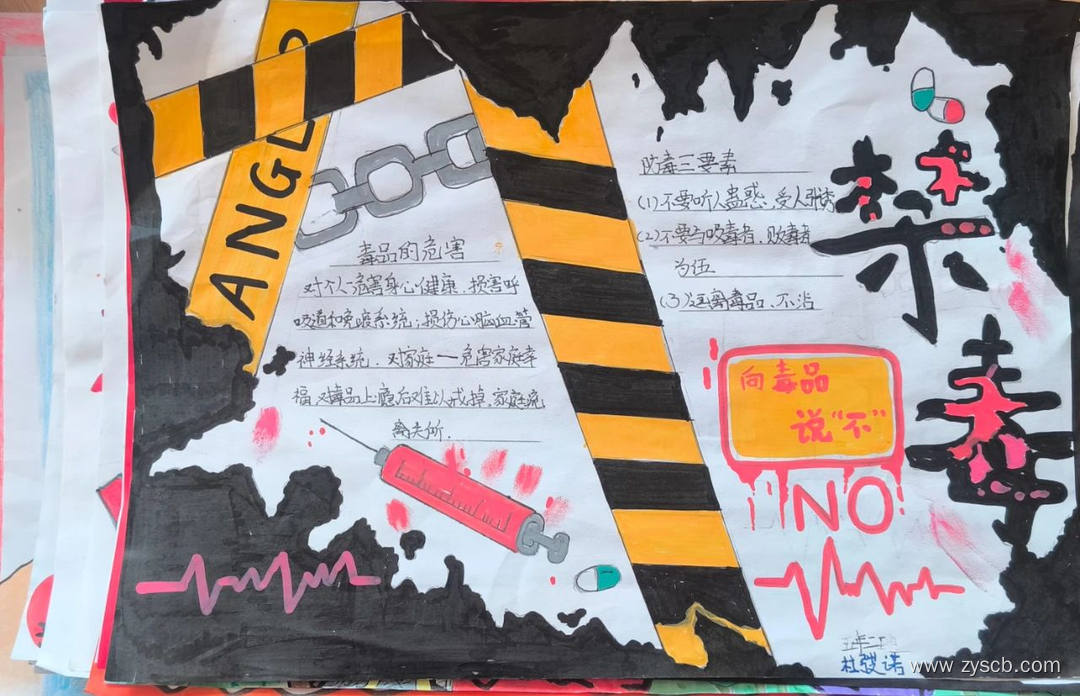 ANGL
毒品的危害
对个人:危害身心健康、损害呼
吸道和免疫系统;损伤心脑血管
神经系统、对家庭一危害家庭幸
福,对毒品上瘾后难以戒掉,家庭流
离失所.
防毒三要素
(1)不要听人蛊惑、受人引诱
(2)不要与吸毒者、贩毒者
为伍
(3)远离毒品、不沾
禁
毒
向毒品
说“不”
NO
www.zyscb.com